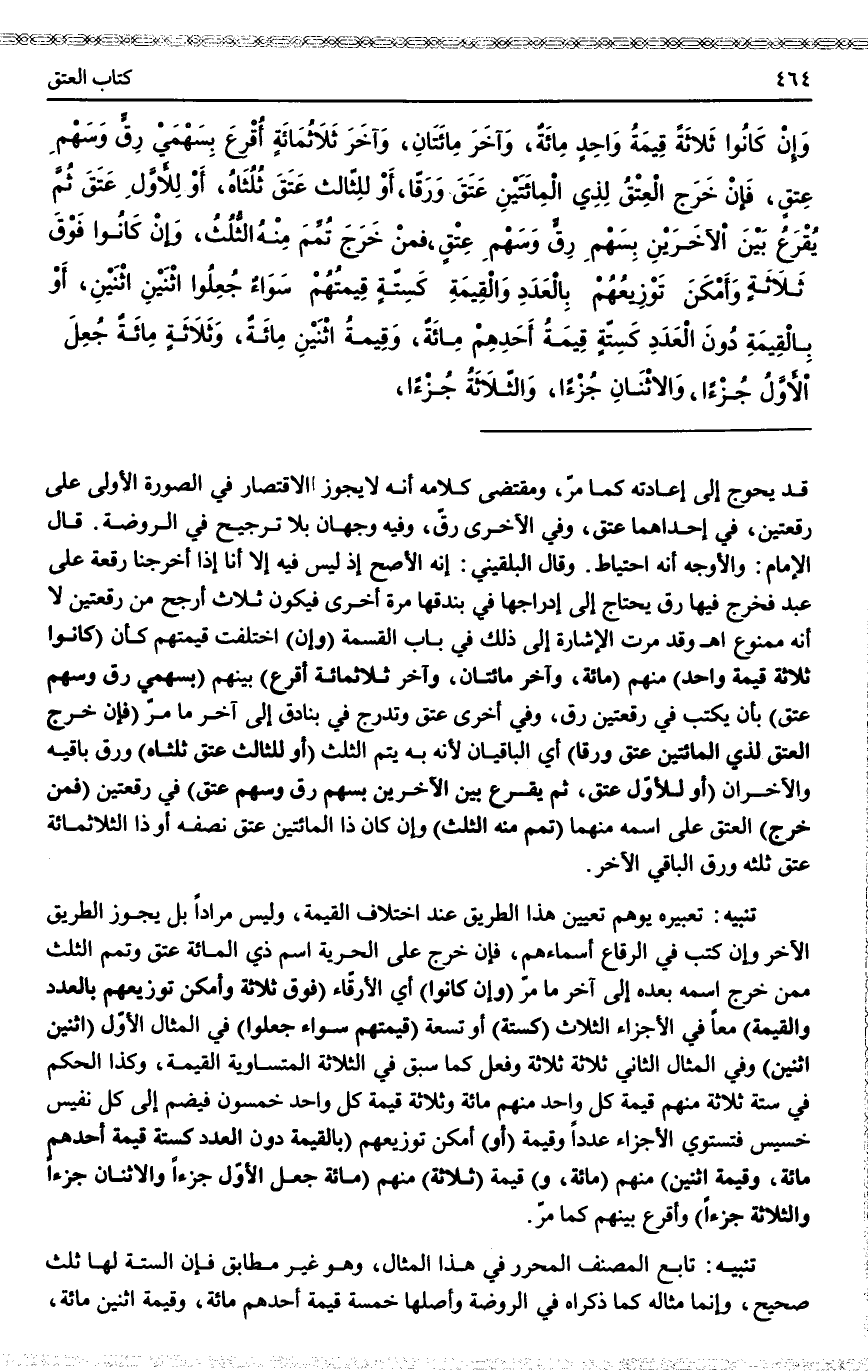 ٤٦٤ كتاب العتق
وَإِنْ كَانُوا ثَلاثَةً قِيمَةُ وَاحِدٍ مِائَةٌ، وَآخَرَ مِائَتَانِ، وَآخَرَ ثَلَاثُمَائَةٍ أُقْرِعَ بِسَهْمَيْ رِقٍّ وَسَهْمِ
عِتقٍ، فَإِنْ خَرَجَ الْعِتْقُ لِذِي الْمِائَتَيْنِ عَتَقَ وَرَقَّا، أَوْ للثَّالث عَتَقَ ثُلُثَاهُ، أَوْ لِلأَوَّلِ عَتَقَ ثُمَّ
يُقْرَعُ بَيْنَ الآخَرَيْنِ بِسَهْمِ رِقٍّ وَسَهْمِ عِتْقٍ، فَمنْ خَرَجَ تُمِّمَ مِنْهُ الثُّلُثُ، وَإِنْ كَانُوا فَوْقَ
ثَلَاثَةٍ وَأَمْكَنَ تَوْزِيعُهُمْ بِالْعَدَدِ وَالْقِيمَةِ كَسِتَّةٍ قِيمَتُهُمْ سَوَاءٌ جُعِلُوا اثْنَيْنِ اثْنَيْنِ، أَوْ
بِالْقِيمَةِ دُونَ الْعَدَدِ كَسِتَّةٍ قِيمَةُ أَحَدِهِمْ مِائَةٌ، وَقِيمَةُ اثْنَيْنِ مِائَةٌ، وَثَلَاثَةٍ مِائَةٌ جُعِلَ
الأَوَّلُ جُزْءًا، وَالاثْنَانِ جُزْءًا، وَالثَّلَاثَةُ جُزْءًا،
قد يحوج إلى إعادته كما مرّ، ومقتضى كلامه أنه لا يجوز الاقتصار في الصورة الأولى على
رقعتين، في إحداهما عتق، وفي الأخرى رقّ، وفيه وجهان بلا ترجيح في الروضة. قال
الإمام: والأوجه أنه احتياط. وقال البلقيني: إنه الأصح إذ ليس فيه إلا أنا إذا أخرجنا رقعة على
عبد فخرج فيها رق يحتاج إلى إدراجها في بندقها مرة أخرى فيكون ثلاث أرجح من رقعتين لا
أنه ممنوع اهـ وقد مرت الإشارة إلى ذلك في باب القسمة (وإن) اختلفت قيمتهم كأن (كانوا
ثلاثة قيمة واحد) منهم (مائة، وآخر مائتان، وآخر ثلاثمائة أقرع) بينهم (بسهمي رق وسهم
عتق) بأن يكتب في رقعتين رق، وفي أخرى عتق وتدرج في بنادق إلى آخر ما مرّ (فإن خرج
العتق لذي المائتين عتق ورقا) أي الباقيان لأنه به يتم الثلث (أو للثالث عتق ثلثاه) ورق باقيه
والآخران (أو للأوّل عتق، ثم يقرع بين الآخرين بسهم رق وسهم عتق) في رقعتين (فمن
خرج) العتق على اسمه منهما (تمم منه الثلث) وإن كان ذا المائتين عتق نصفه أو ذا الثلاثمائة
عتق ثلثه ورق الباقي الآخر.
تنبيه: تعبيره يوهم تعيين هذا الطريق عند اختلاف القيمة، وليس مراداً بل يجوز الطريق
الآخر وإن كتب في الرقاع أسماءهم، فإن خرج على الحرية اسم ذي المائة عتق وتمم الثلث
ممن خرج اسمه بعده إلى آخر ما مرّ (وإن كانوا) أي الأرقّاء (فوق ثلاثة وأمكن توزيعهم بالعدد
والقيمة) معاً في الأجزاء الثلاث (كستة) أو تسعة (قيمتهم سواء جعلوا) في المثال الأوّل (اثنين
اثنين) وفي المثال الثاني ثلاثة ثلاثة وفعل كما سبق في الثلاثة المتساوية القيمة، وكذا الحكم
في ستة ثلاثة منهم قيمة كل واحد منهم مائة وثلاثة قيمة كل واحد خمسون فيضم إلى كل نفيس
خسيس فتستوي الأجزاء عدداً وقيمة (أو) أمكن توزيعهم (بالقيمة دون العدد كستة قيمة أحدهم
مائة، وقيمة اثنين) منهم (مائة، و) قيمة (ثلاثة) منهم (مائة جعل الأوّل جزءاً والاثنان جزءاً
والثلاثة جزءاً) وأقرع بينهم كما مرّ.
تنبيه: تابع المصنف المحرر في هذا المثال، وهو غير مطابق فإن الستة لها ثلث
صحيح، وإنما مثاله كما ذكراه في الروضة وأصلها خمسة قيمة أحدهم مائة، وقيمة اثنين مائة،